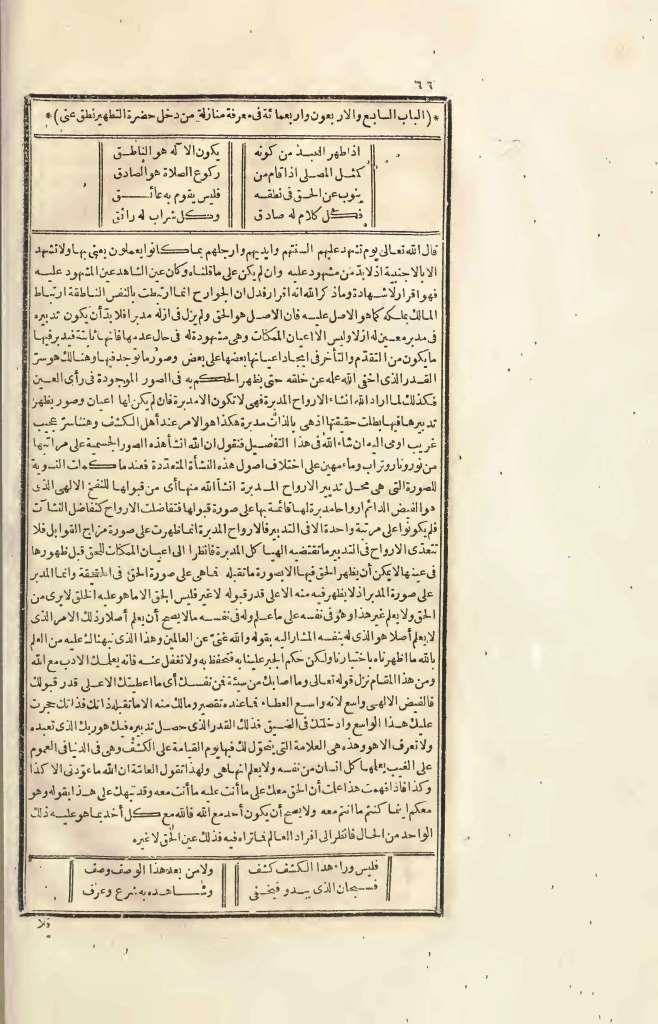 ٦٦
* (الباب السابع والاربعون واربعمائة فى معرفة منازلة من دخل حضرة التطهير نطق عنى) *
اذا طهر العبد من كونه يكون الاله هو الناطق
كمثل المصلى اذا قام من ركوع الصلاة هو الصادق
ينوب عن الحق فى نطقه فليس يقوم به عائق
فكل كلام له صادق وكل شراب له رائق
قال الله تعالى يوم تشهد عليهم السنتهم وايديهم وارجلهم بما كانوا يعملون يعنى بها ولا تشهد
الا بالاجنبية اذ لا بد من مشهود عليه وان لم يكن على ما قلناه وكان عين الشاهد عين المشهود عليه
فهو اقرار لا شهادة وما ذكر الله انه اقرار فدل ان الجوارح انما ارتبطت بالنفس الناطقة ارتباط
المالك بملكه كما هو الاصل عليه فان الاصل هو الحق ولم يزل فى ازله مدبرا فلابد أن يكون تدبيره
فى مدبر معين له ازلا وليس الا اعيان الممكنات وهى مشهودة له فى حال عدمها فانها ثابتة فيدبر فيها
ما يكون من التقدم والتأخر فى ايجاد اعيانها بعضها على بعض وصور ما توجد فيها وهنالك هو سر
القدر الذى اخفى الله علمه عن خلقه حتى يظهر الحكم به فى الصور الموجودة فى رأى العين
فكذلك لما اراد الله انشاء الارواح المدبرة فهى لا تكون الا مدبرة فان لم يكن لها اعيان وصور يظهر
تدبيرها فيها بطلت حقيقتها اذ هى بالذات مدبرة هكذا هو الامر عند أهل الكشف وهنا سر عجيب
غريب اومى اليه ان شاء الله فى هذا التفصيل فنقول ان الله انشأ هذه الصور الجسمية على مراتبها
من نور ونار وتراب وماء مهين على اختلاف اصول هذه النشأة المتعددة فعند ما كملت التسوية
للصورة التى هى محل تدبير الارواح المدبرة انشأ الله منها أى من قبولها للنفخ الالهى الذى
هو الفيض الدائم ارواحا مدبرة لها قائمة بها على صورة قبولها فتفاضلت الارواح كتفاضل النشآت
فلم يكونوا على مرتبة واحدة الا فى التدبير فالارواح المدبرة انما ظهرت على صورة مزاج القوابل فلا
تتعدى الارواح فى التدبير ما تقتضيه الهياكل المدبرة فانظر الى اعيان الممكنات للحق قبل ظهورها
فى عينها لا يمكن أن يظهر الحق فيها الا بصورة ما تقبله فما هى على صورة الحق فى الحقيقة وانما المدبر
على صورة المدبر اذ لا يظهر فيه منه الا على قدر قبوله لا غير فليس الحق الا ما هو عليه الخلق لا يرى من
الحق ولا يعلم غير هذا وهو فى نفسه على ما علم وله فى نفسه ما لا يصح أن يعلم أصلا وذلك الامر الذى
لا يعلم أصلا هو الذى له بنفسه المشار اليه بقوله والله غنى عن العالمين وهذا الذى نبهناك عليه من العلم
بالله ما اظهرناه باختيارنا ولكن حكم الجبر علينا به فتحفظ به ولا تغفل عنه فانه يعلمك الادب مع الله
ومن هذا المقام نزل قوله تعالى وما اصابك من سيئة فمن نفسك أى ما اعطيتك الا على قدر قبولك
فالفيض الالهى واسع لانه واسع العطاء فما عنده تقصير وما لك منه الا ما تقبله ذاتك فذاتك حجرت
عليك هذا الواسع وادخلتك فى الضيق فذلك القدر الذى حصل تدبيره فيك هو ربك الذى تعبده
ولا تعرف الا هو وهذه هى العلامة التى يتحول لك فيها يوم القيامة على الكشف وهى فى الدنيا فى العموم
على الغيب يعلمها كل انسان من نفسه ولا يعلم انها هى ولهذا تقول العامة ان الله ما عودنى الا كذا
وكذا فاذا فهمت هذا علمت أن الحق معك على ما أنت عليه ما أنت معه وقد نبهك على هذا بقوله وهو
معكم اينما كنتم ما انتم معه ولا يصح أن يكون أحد مع الله فالله مع كل أحد بما هو عليه ذلك
الواحد من الحال فانظر الى افراد العالم فما تراه فيه فذلك عين الحق لا غيره
فليس وراء هذا الكشف كشف ولا من بعد هذا الوصف وصف
فسبحان الذى يبدو فيخفى وشاهده به شرع وعرف
فلا